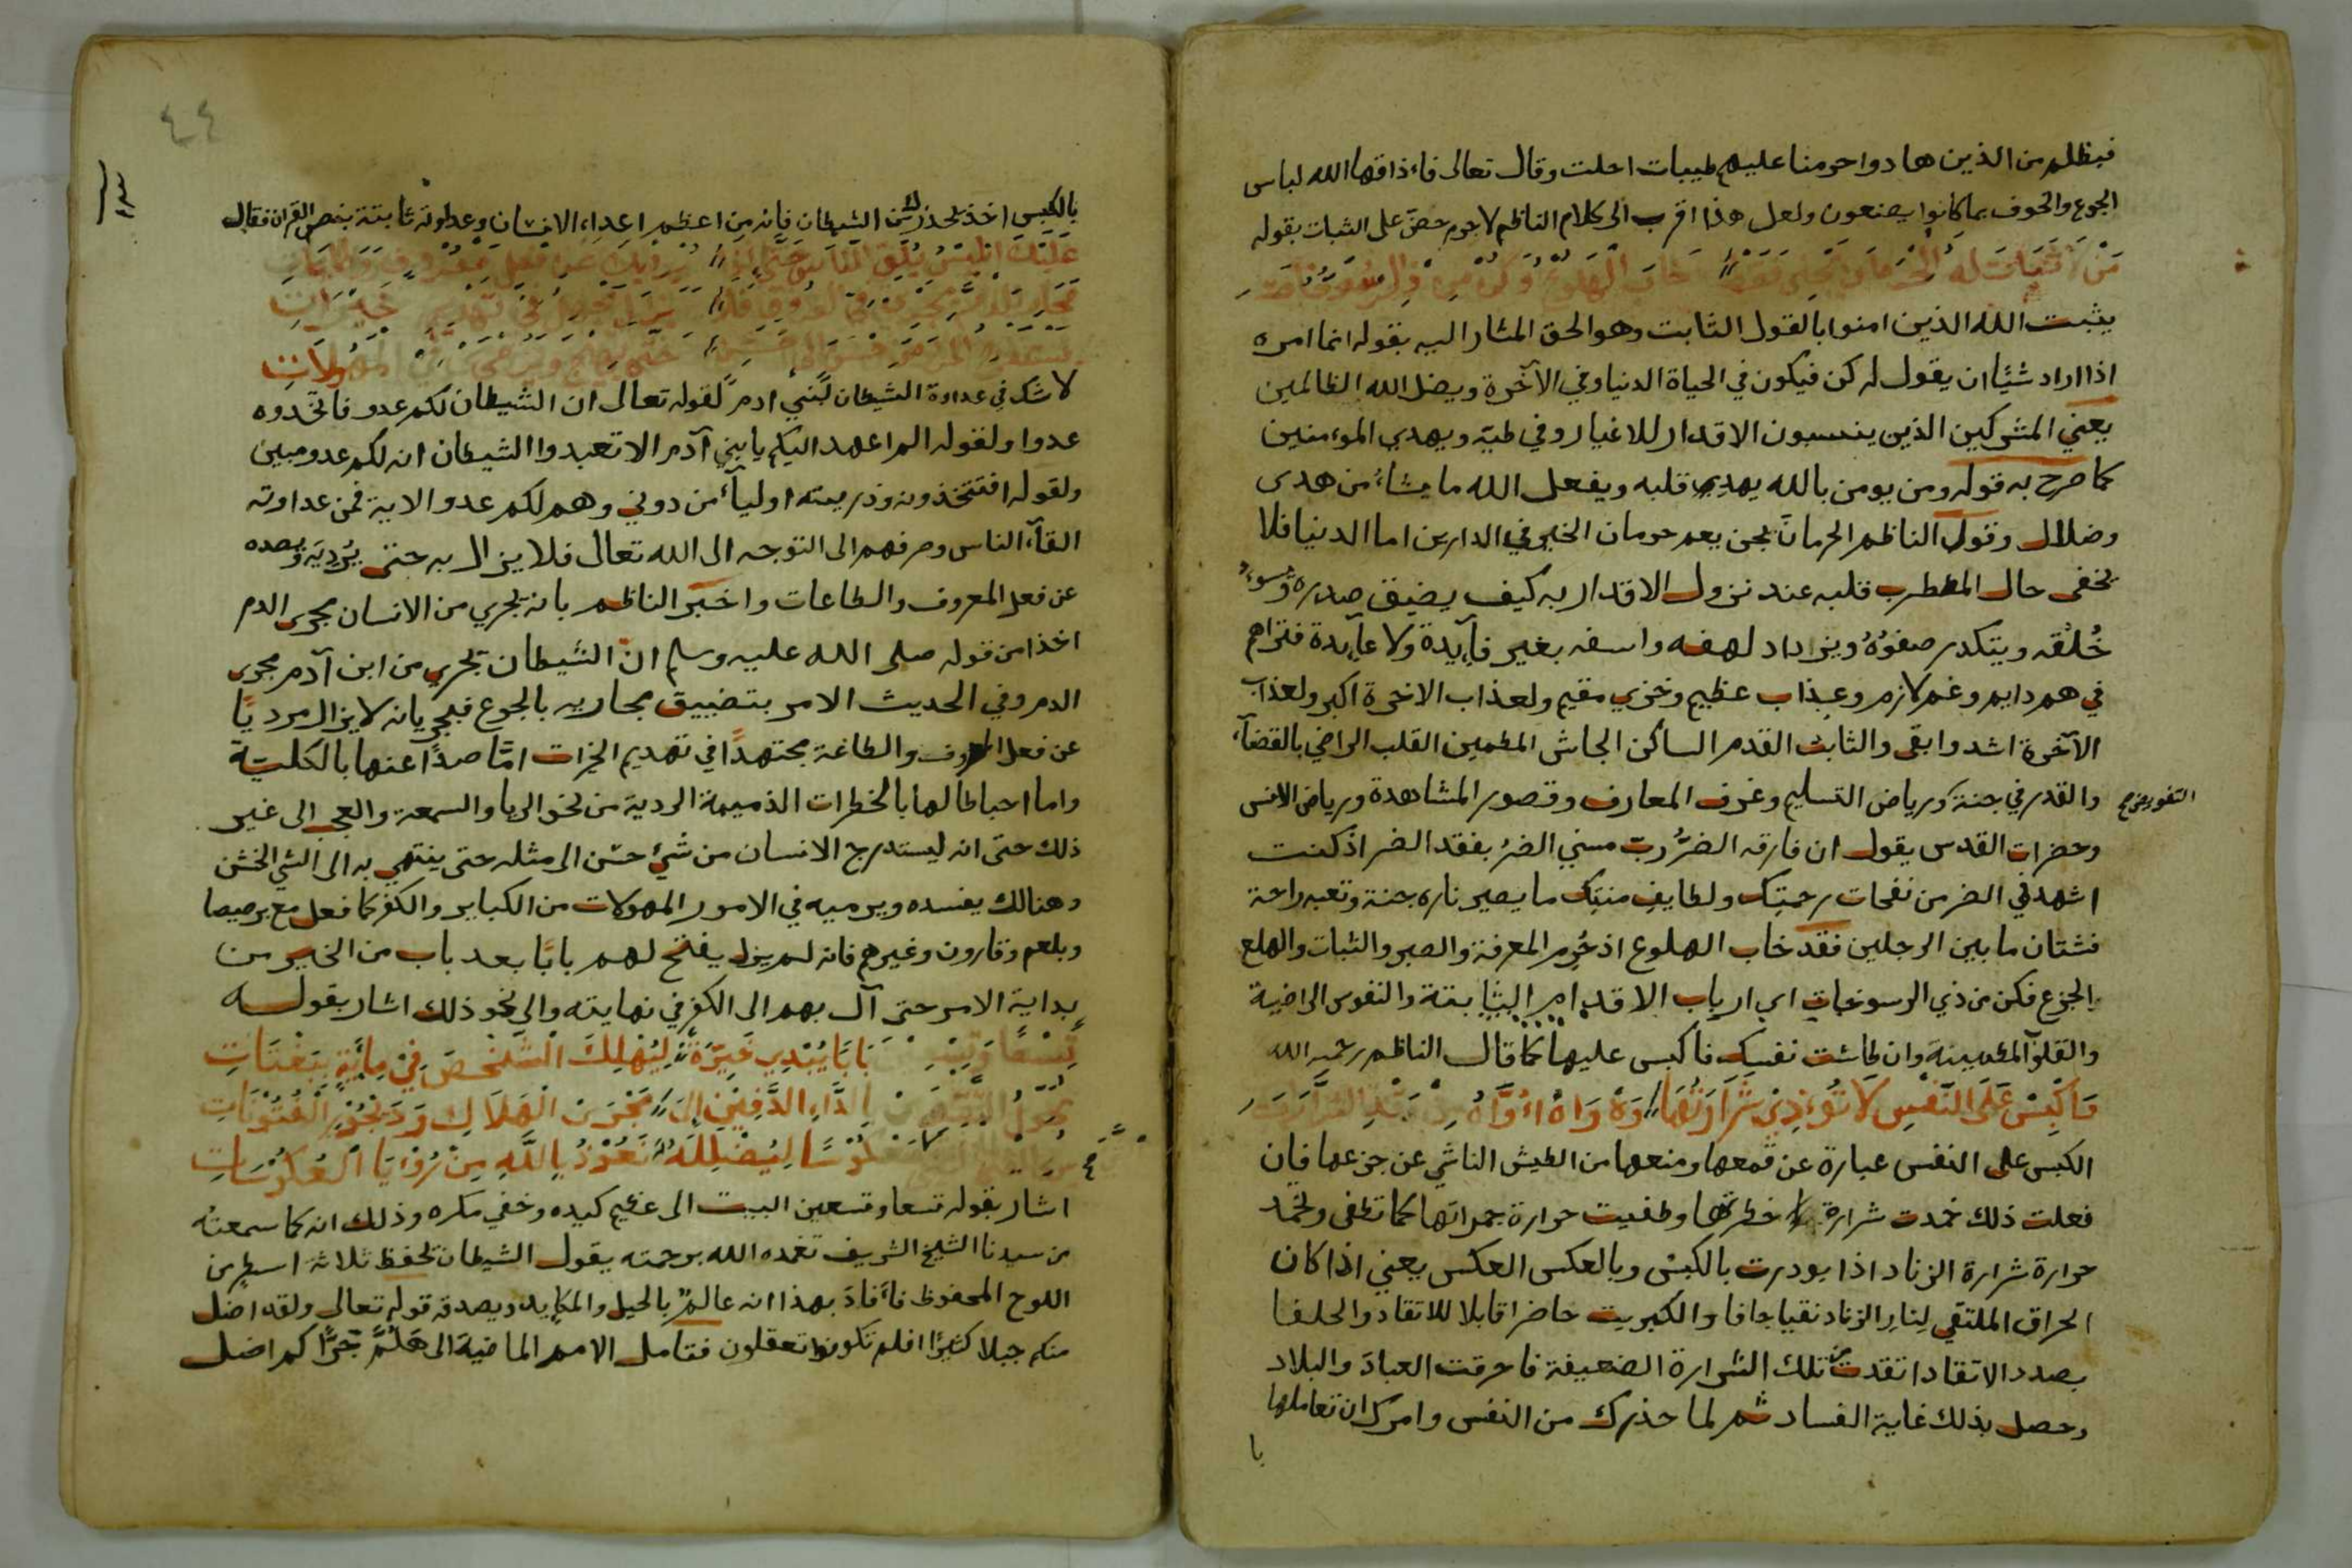 فبظلم من الذين هادوا حرمنا عليهم طيبات احلت وقال تعالى فاءذاقها الله لباس
الجوع والخوف بما كانوا يصنعون ولعل هذا اقرب الى كلام الناظم لا جرم حض على الثبات بقوله
خاب الهلوع وكن من ذي
يثبت الله الذين امنوا بالقول الثابت وهو الحق المشار اليه بقوله انما امره
اذا اراد شئيا ان يقول له كن فيكون في الحياة الدنيا وفي الآخرة ويضل الله الظالمين
يعني المشركين الذين ينسبون الاقدار للاغيار وفي طيّه ويهدي الموءمنين
كما صرح به قوله ومن يومن بالله يهدي قلبه ويفعل الله ما يشاء من هدى
وضلال وقول الناظم الحرمان بجن يعم حرمان الخير في الدارين اما الدنيا فلا
يخفى حال المضطرب قلبه عند نزول الاقدار به كيف يضيق صدره وتسوء
خُلُقه ويتكدر صفوُهُ ويزداد لهفه واسفه بغير فآيدة ولا عآيدة فتراهم
في هم دايم وغم لازم وعذاب عظيم وخزي مقيم ولعذاب الاخرة اكبر ولعذاب
الآخرة اشد وابقى والثابت القدم الساكن الجاش المطمين القلب الراضي بالقضآء
والقدر في جنة ورياض التسليم وغرف المعارف وقصور المشاهدة ورياض الانس
التفويض صح
وحضرات القدس يقول ان فارقه الضُّر ربّ مسني الضرُ بفقد الضر اذ كنت
اشهد في الضر من نفحات رحمتك ولطايف منتِك ما يصير ناره جنة وتعبه راحة
فشتان ما بين الرجلين فقد خاب الهلوع اذ حُرِم المعرفة والصبر والثبات والهلع
والجزع فكن من ذي الرسوخات اي ارباب الاقدام الثابتة والنفوس الراضية
والقلوب المطمينة وان طاشت نفسك فاكبس عليها كما قال الناظم رحمه الله
وَاكْبِسْ عَلَى النَّفْسِ لَا تُوءذِي شَرَارَتُهَا
الكبس على النفس عبارة عن قمعها ومنعها من الطيش الناشي عن جزعها فإن
فعلت ذلك خمدت شرارة خطرتها وطفيت حرارة جمراتها كما تطفى وتخمد
حرارة شرارة الزناد اذا بودرت بالكبس وبالعكس العكس يعني اذا كان
الحراق الملتقي لنار الزناد نقيا جافا والكبريت حاضرا قابلا للاتقاد والحلفا
بصدد الاتقاد اتقدت من تلك الشرارة الضعيفة فاحرقت العباد والبلاد
وحصل بذلك غاية الفساد ثم لما حذرك من النفس وامرك ان تعاملها
با
٤٤
بالكبس اخذ يحذرك من الشيطان فإنه من اعظم اعداء الانسان وعداوته ثابتة بنص القران فقال
لا شك في عداوة الشيطان لبني ادم لقوله تعالى ان الشيطان لكم عدو فاتخدوه
عدوا ولقوله الم اعهد اليكم يا بني آدم الا تعبدوا الشيطان انه لكم عدو مبين
ولقوله افتتخذونه وذريته اوليآء من دوني وهم لكم عدو الاية فمن عداوته
القآء الناس وصرفهم الى التوجه الى الله تعالى فلا يزال به حتى يُردِيَه ويصده
عن فعل المعروف والطاعات واخبر الناظم بانه يجري من الانسان مجرى الدم
اخذا من قوله صلى الله عليه وسلم انّ الشيطان يجري من ابن آدم مجرى
الدم وفي الحديث الامر بتضييق مجاريه بالجوع فيجريانه لا يزال مرديًا
عن فعل المعروف والطاعة مجتهدًا في تهديم الخيرات امّا صدًا عنها بالكليّة
واما احباطا لها بالخطرات الذميمة الردية من نحو الريا والسمعة والعجب الى غير
ذلك حتى انه ليستدرج الانسان من شئ حسن الى مثله حتى ينتهي به الى الشي الخشن
وهنالك يفسده ويرميه في الامور المهولات من الكباير والكفر كما فعل مع برصيصا
وبلعم وقارون وغيرهم فانه لم يزل يفتح لهم بابًا بعد باب من الخير من
بداية الامر حتى آل بهم الى الكفر في نهايته والى نحو ذلك اشار بقوله
تِسْعًا وَتِسْعِينَ بَابًا يُبْدِي خَيِّرَةً لِيُهْلِكَ الشَّخْصَ فِيْ مِائَةٍ بَبَغْتَاتِ
الدَّاءِ الدَّفِيْنِ إِلَى بَحْرِ الْهَلَاكِ
لِيُضْلِلَهُ نَعُوْذُ بِاللَّهِ مِنْ رُؤْيَا الْعُكُوْسَاتِ
اشار بقوله تسعا وتسعين البيت الى عظيم كيده وخفي مكره وذلك انه كما سمعته
من سيدنا الشيخ الشريف تغمده الله برحمته يقول الشيطان تحفظ ثلاثة اسطر من
اللوح المحفوظ فاءفادَ بهذا انه عالم بالحيل والمكايد ويصدقه قوله تعالى ولقد اضل
منكم جبلا كثيرًا افلم تكونوا تعقلون فتامل الامم الماضية الى هَلُمَّ جَرًّا كم اضل